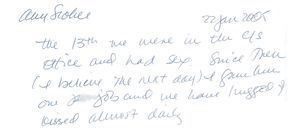 Amy
22 Jan 2005
the 13th we were in the C/S
office and had sex. Since Then
(I believe The next day) I gave him
one job and we have hugged &
kissed almost daily